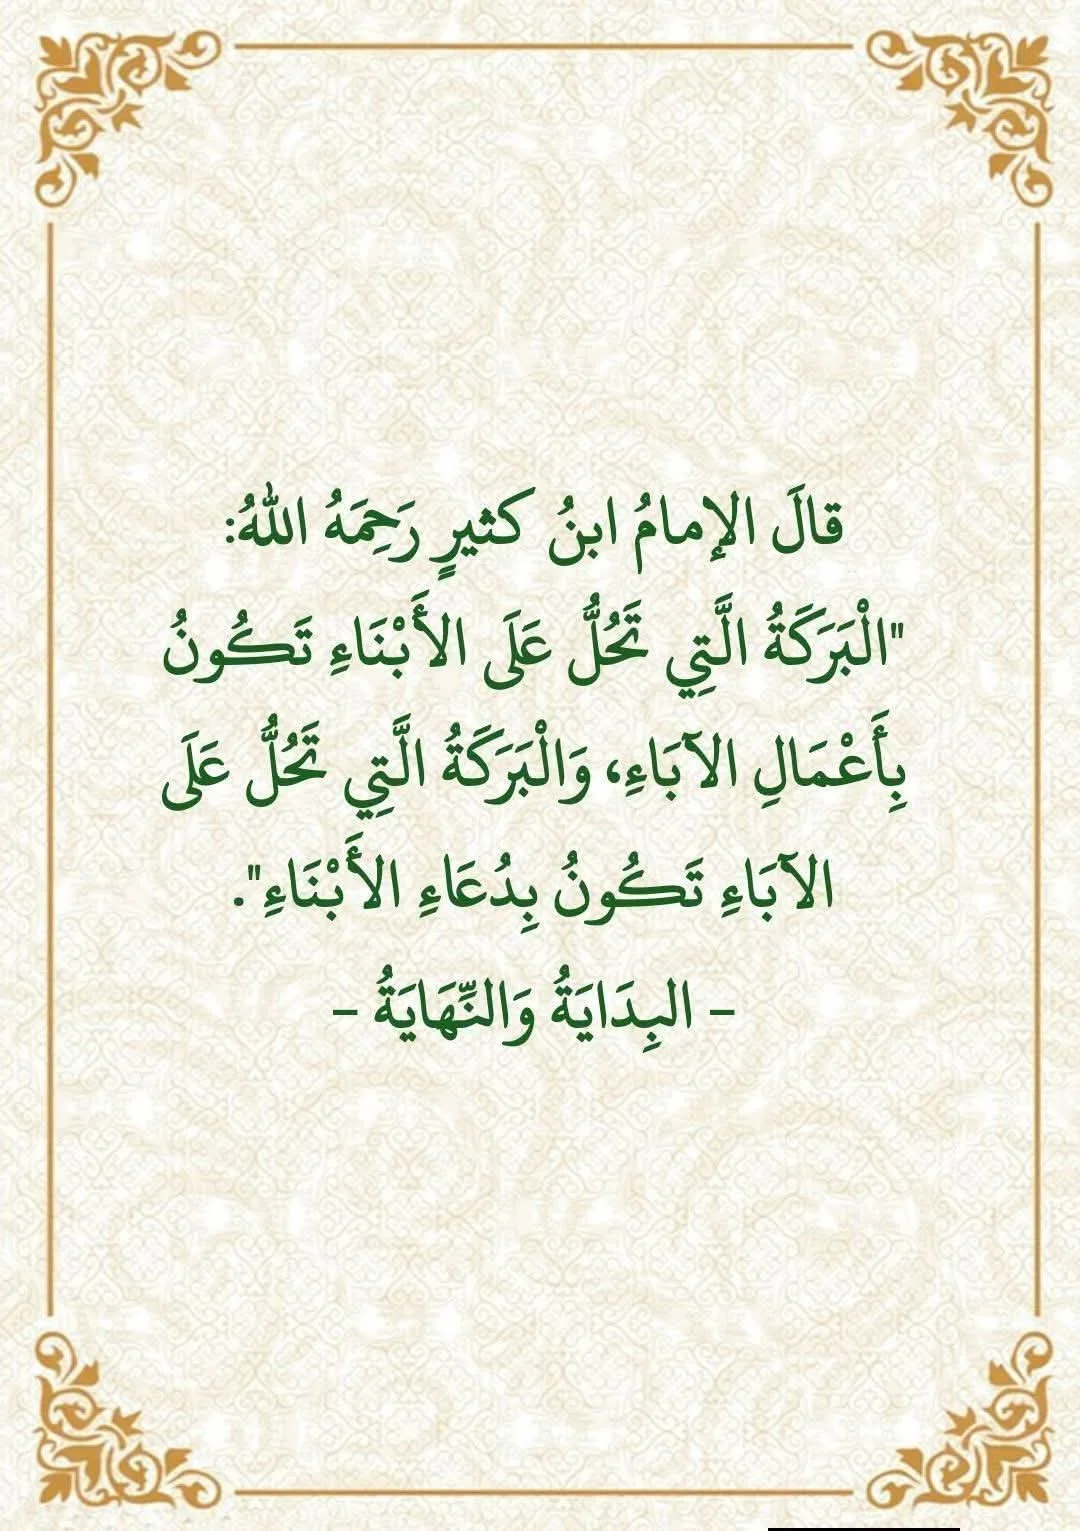 قالَ الإمامُ ابنُ كثيرٍ رَحِمَهُ اللهُ:
"الْبَرَكَةُ الَّتِي تَحُلُّ عَلَى الأَبْنَاءِ تَكُونُ
بِأَعْمَالِ الآبَاءِ، وَالْبَرَكَةُ الَّتِي تَحُلُّ عَلَى
الآبَاءِ تَكُونُ بِدُعَاءِ الأَبْنَاءِ".
– البِدَايَةُ وَالنِّهَايَةُ –